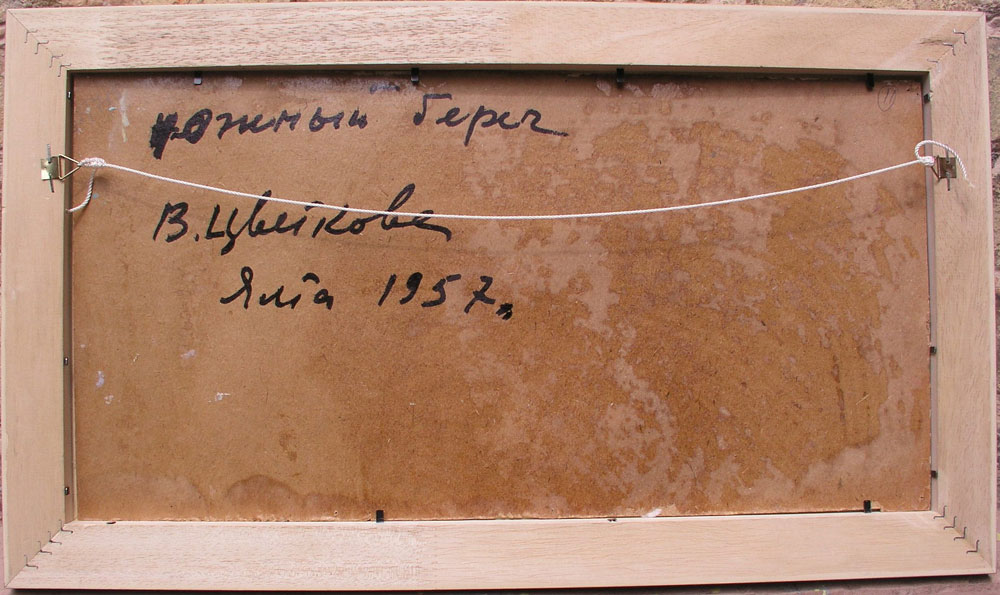 южный берег
В. Цветкова
Ялта 1957„